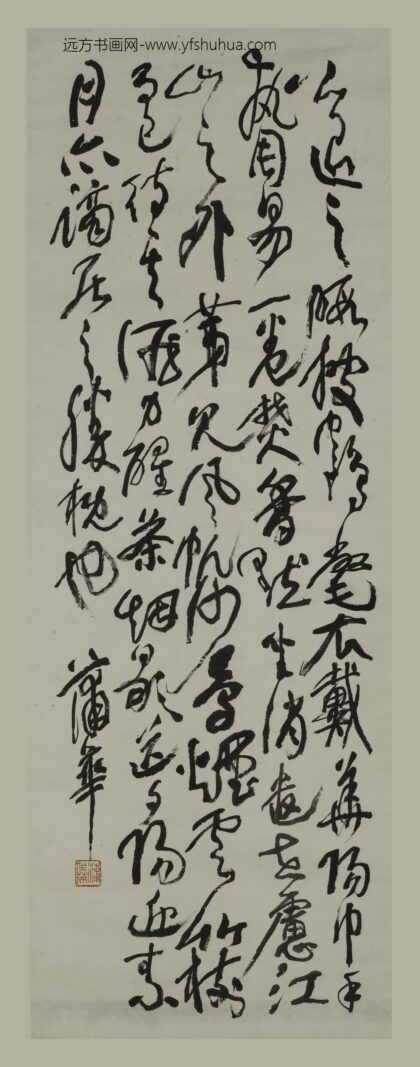 远方书画网-www.yfshuhua.com
公退之暇披鶴氅衣戴華陽巾手
執周易一卷焚香默坐消遣世慮江
山之外第見風帆沙鳥煙雲竹樹
而已待其酒力醒茶烟歇送夕陽迎素
月亦謫居之勝概也
蒲華